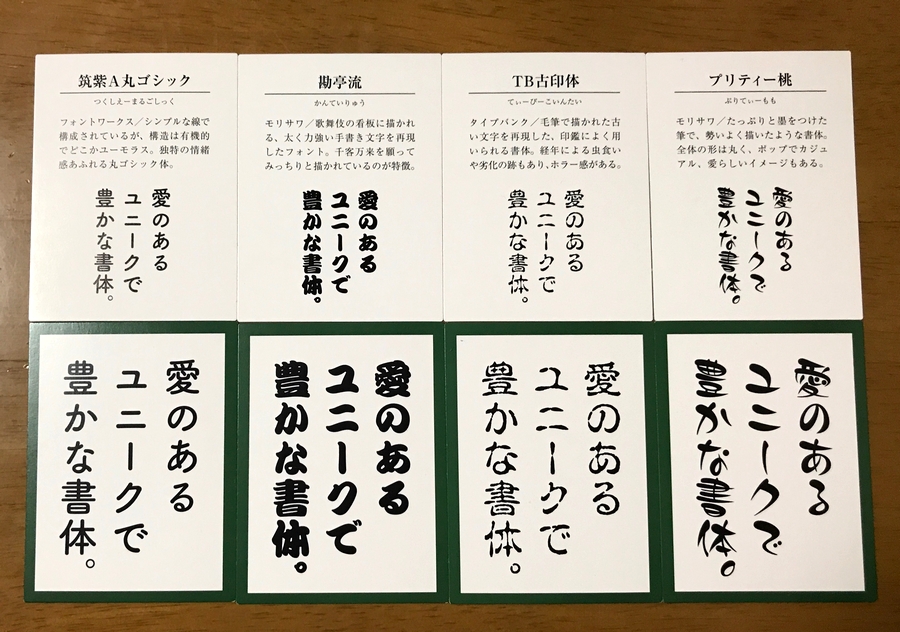 筑紫A丸ゴシック
つくしえーまるごしっく
フォントワークス／シンプルな線で
構成されているが、構造は有機的
でどこかユーモラス。独特の情緒
感あふれる丸ゴシック体。
愛のある
ユニークで
豊かな書体。
勘亭流
かんていりゅう
モリサワ／歌舞伎の看板に描かれ
る、太く力強い手書き文字を再現
したフォント。千客万来を願って
みっちりと描かれているのが特徴。
愛のある
ユニークで
豊かな書体。
TB古印体
てぃーびーこいんたい
タイプバンク／毛筆で描かれた古
い文字を再現した、印鑑によく用
いられる書体。経年による虫食い
や劣化の跡もあり、ホラー感がある。
愛のある
ユニークで
豊かな書体。
プリティー桃
ぷりてぃーもも
モリサワ／たっぷりと墨をつけた
筆で、勢いよく描いたような書体。
全体の形は丸く、ポップでカジュ
アル、愛らしいイメージもある。
愛のある
ユニークで
豊かな書体。
愛のある
ユニークで
豊かな書体。
愛のある
ユニークで
豊かな書体。
愛のある
ユニークで
豊かな書体。
愛のある
ユニークで
豊かな書体。